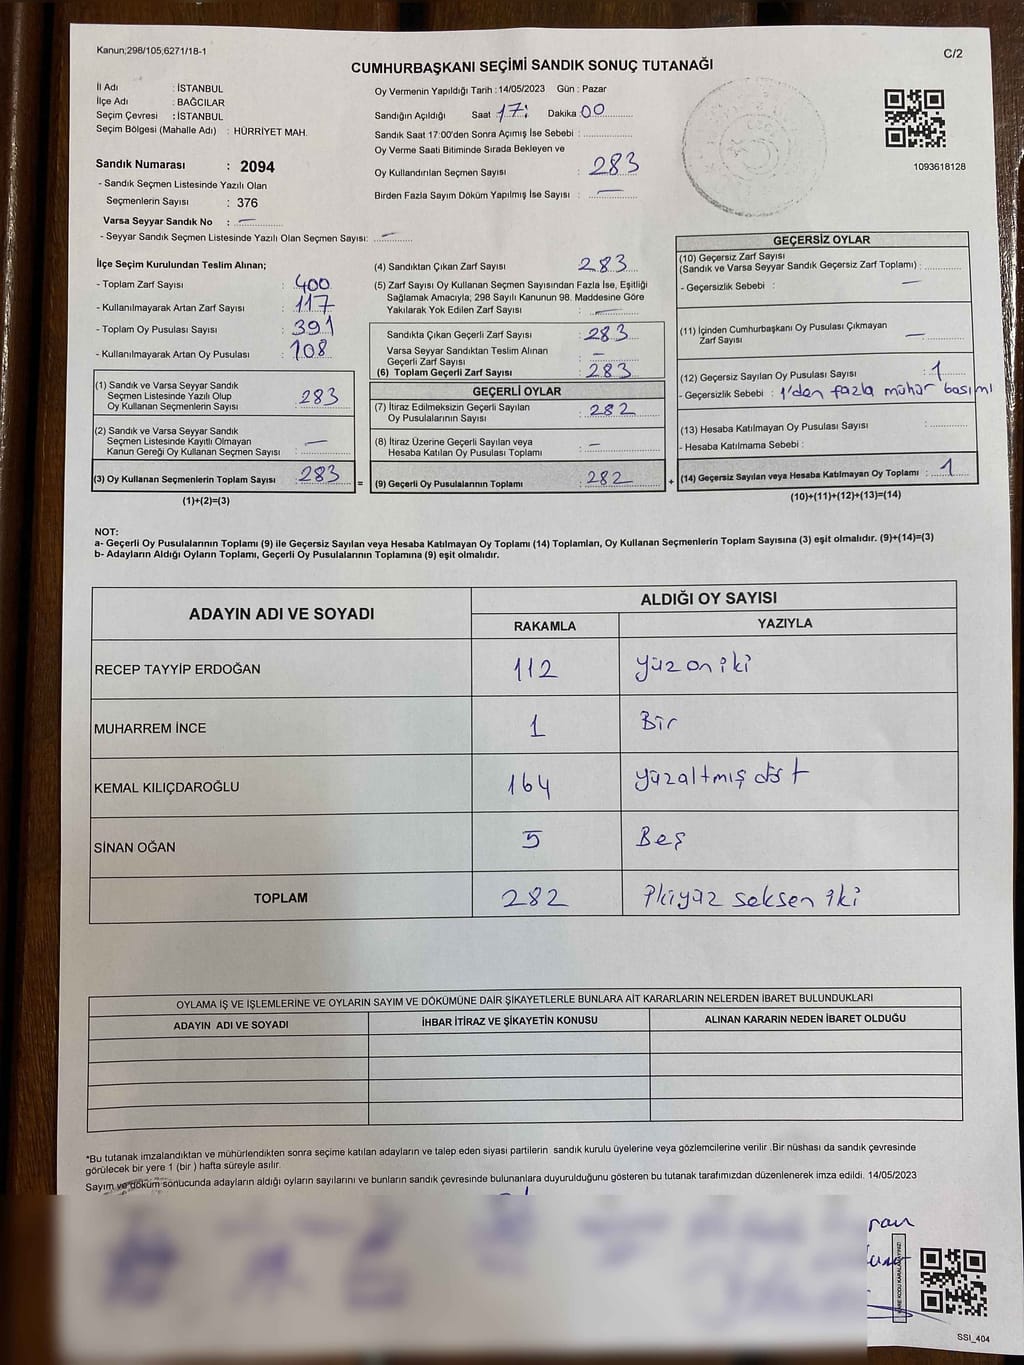 Kanun;298/105,6271/18-1
C/2
CUMHURBAŞKANI SEÇİMİ SANDIK SONUÇ TUTANAĞI
İl Adı : İSTANBUL
İlçe Adı : BAĞCILAR
Seçim Çevresi : İSTANBUL
Seçim Bölgesi (Mahalle Adı) : HÜRRİYET MAH.
Sandık Numarası : 2094
- Sandık Seçmen Listesinde Yazılı Olan
Seçmenlerin Sayısı : 376
Varsa Seyyar Sandık No : —
- Seyyar Sandık Seçmen Listesinde Yazılı Olan Seçmen Sayısı: —
Oy Vermenin Yapıldığı Tarih : 14/05/2023 Gün : Pazar
Sandığın Açıldığı Saat 17: Dakika 00
Sandık Saat 17:00'den Sonra Açımış İse Sebebi :
Oy Verme Saati Bitiminde Sırada Bekleyen ve
Oy Kullandırılan Seçmen Sayısı : 283
Birden Fazla Sayım Döküm Yapılmış İse Sayısı : —
1093618128
İlçe Seçim Kurulundan Teslim Alınan;
- Toplam Zarf Sayısı : 400
- Kullanılmayarak Artan Zarf Sayısı : 117
- Toplam Oy Pusulası Sayısı : 391
- Kullanılmayarak Artan Oy Pusulası : 108
(1) Sandık ve Varsa Seyyar Sandık
Seçmen Listesinde Yazılı Olup
Oy Kullanan Seçmenlerin Sayısı : 283
(2) Sandık ve Varsa Seyyar Sandık
Seçmen Listesinde Kayıtlı Olmayan
Kanun Gereği Oy Kullanan Seçmen Sayısı : —
(3) Oy Kullanan Seçmenlerin Toplam Sayısı : 283 =
(1)+(2)=(3)
(4) Sandıktan Çıkan Zarf Sayısı : 283
(5) Zarf Sayısı Oy Kullanan Seçmen Sayısından Fazla İse, Eşitliği
Sağlamak Amacıyla; 298 Sayılı Kanunun 98. Maddesine Göre
Yakılarak Yok Edilen Zarf Sayısı : —
Sandıkta Çıkan Geçerli Zarf Sayısı : 283
Varsa Seyyar Sandıktan Teslim Alınan
Geçerli Zarf Sayısı : —
(6) Toplam Geçerli Zarf Sayısı : 283
GEÇERLİ OYLAR
(7) İtiraz Edilmeksizin Geçerli Sayılan
Oy Pusulalarının Sayısı : 282
(8) İtiraz Üzerine Geçerli Sayılan veya
Hesaba Katılan Oy Pusulası Toplamı : —
(9) Geçerli Oy Pusulalarının Toplamı : 282 +
GEÇERSİZ OYLAR
(10) Geçersiz Zarf Sayısı
(Sandık ve Varsa Seyyar Sandık Geçersiz Zarf Toplamı) :
- Geçersizlik Sebebi : —
(11) İçinden Cumhurbaşkanı Oy Pusulası Çıkmayan
Zarf Sayısı : —
(12) Geçersiz Sayılan Oy Pusulası Sayısı : 1
- Geçersizlik Sebebi : 1'den fazla mühür basımı
(13) Hesaba Katılmayan Oy Pusulası Sayısı :
- Hesaba Katılmama Sebebi :
(14) Geçersiz Sayılan veya Hesaba Katılmayan Oy Toplamı : 1
(10)+(11)+(12)+(13)=(14)
NOT:
a- Geçerli Oy Pusulalarının Toplamı (9) ile Geçersiz Sayılan veya Hesaba Katılmayan Oy Toplamı (14) Toplamları, Oy Kullanan Seçmenlerin Toplam Sayısına (3) eşit olmalıdır. (9)+(14)=(3)
b- Adayların Aldığı Oyların Toplamı, Geçerli Oy Pusulalarının Toplamına (9) eşit olmalıdır.
ADAYIN ADI VE SOYADI
ALDIĞI OY SAYISI
RAKAMLA YAZIYLA
RECEP TAYYİP ERDOĞAN 112 yüzoniki
MUHARREM İNCE 1 Bir
KEMAL KILIÇDAROĞLU 164 yüzaltmış dört
SİNAN OĞAN 5 Beş
TOPLAM 282 İkiyüz seksen iki
OYLAMA İŞ VE İŞLEMLERİNE VE OYLARIN SAYIM VE DÖKÜMÜNE DAİR ŞİKAYETLERLE BUNLARA AİT KARARLARIN NELERDEN İBARET BULUNDUKLARI
ADAYIN ADI VE SOYADI İHBAR İTİRAZ VE ŞİKAYETİN KONUSU ALINAN KARARIN NEDEN İBARET OLDUĞU
*Bu tutanak imzalandıktan ve mühürlendikten sonra seçime katılan adayların ve talep eden siyasi partilerin sandık kurulu üyelerine veya gözlemcilerine verilir .Bir nüshası da sandık çevresinde
görülecek bir yere 1 (bir ) hafta süreyle asılır.
Sayım ve döküm sonucunda adayların aldığı oyların sayılarını ve bunların sandık çevresinde bulunanlara duyurulduğunu gösteren bu tutanak tarafımızdan düzenlenerek imza edildi. 14/05/2023
SSI_404